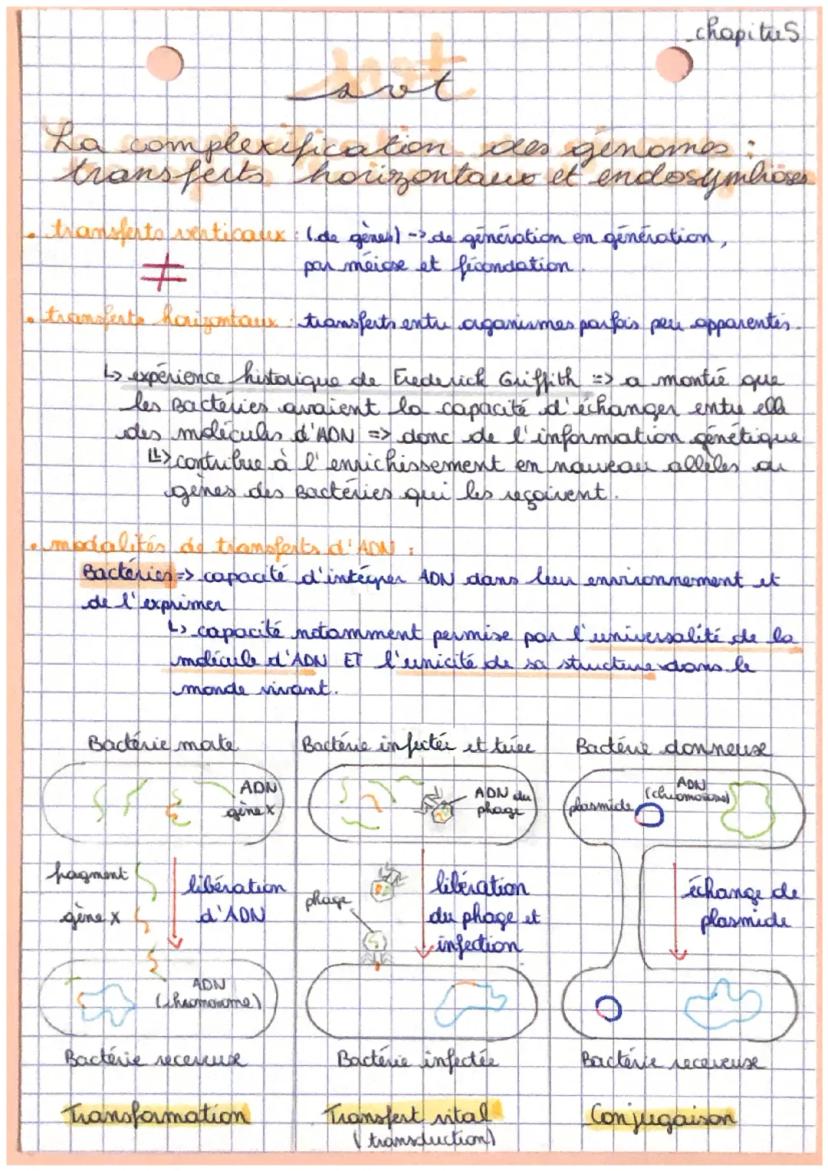 chapitre 5
svt
La complexification des génomes :
transferts horizontaux et endosymbioses
• transferts verticaux : (de gènes) -> de génération en génération,
≠ par méiose et fécondation.
• transferts horizontaux : transferts entre organismes parfois peu apparentés.
↳ expérience historique de Frederick Griffith => a montré que
les Bactéries avaient la capacité d'échanger entre elle
des molécules d'ADN => donc de l'information génétique
↳ contribue à l'enrichissement en nouveau allèles ou
gènes des Bactéries qui les reçoivent.
• modalités de transferts d'ADN :
Bactéries => capacité d'intégrer ADN dans leur environnement et
de l'exprimer
↳ capacité notamment permise par l'universalité de la
molécule d'ADN ET l'unicité de sa structure dans le
monde vivant.
Bactérie morte
ADN
gène x
fragment
gène x
libération
d'ADN
ADN
(chromosome)
Bactérie receveuse
Transformation
Bactérie infectée et tuée
ADN du
phage
phage
libération
du phage et
infection
Bactérie infectée
Transfert vital
(transduction)
Bactérie donneuse
plasmide
ADN
(chromosome)
échange de
plasmide
Bactérie receveuse
Conjugaison